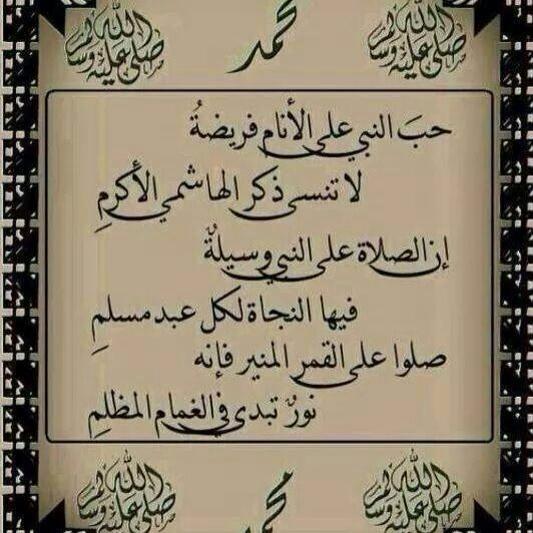 صلى الله عليه وسلم محمد صلى الله عليه وسلم
حبَ النبي على الأنام فريضةُ
لا تنسى ذكر الهاشمي الأكرمِ
إن الصلاة على النبي وسيلةٌ
فيها النجاة لكل عبد مسلمِ
صلوا على القمر المنير فإنه
نورٌ تبدى في الغمام المظلمِ
صلى الله عليه وسلم محمد صلى الله عليه وسلم